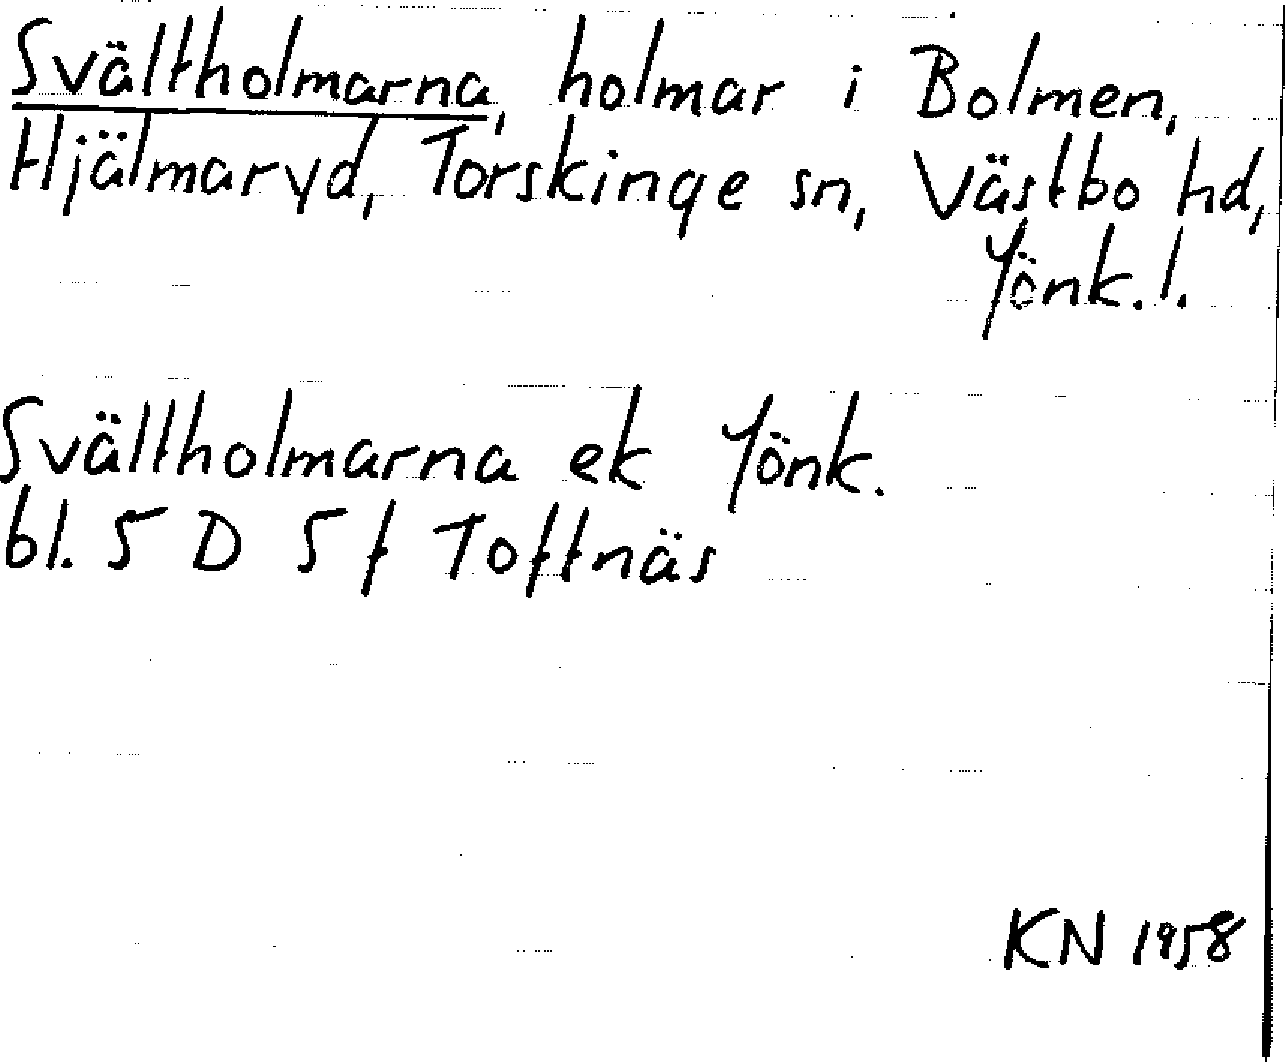 Svältholmarna, holmar i Bolmen,
Hjälmaryd, Torskinge sn, Västbo hd,
Jönk. l.
Svältholmarna ek Jönk.
bl. 5 D 5 f Toftnäs
KN 1958